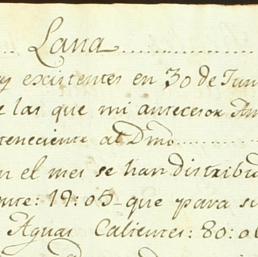 Lana
existentes en 30 de Jun
e las que mi antecesor An
teneciente al Dmo
n el mes se han distribu
nte: 19:05 que para s
Aguas Calientes: 80:0